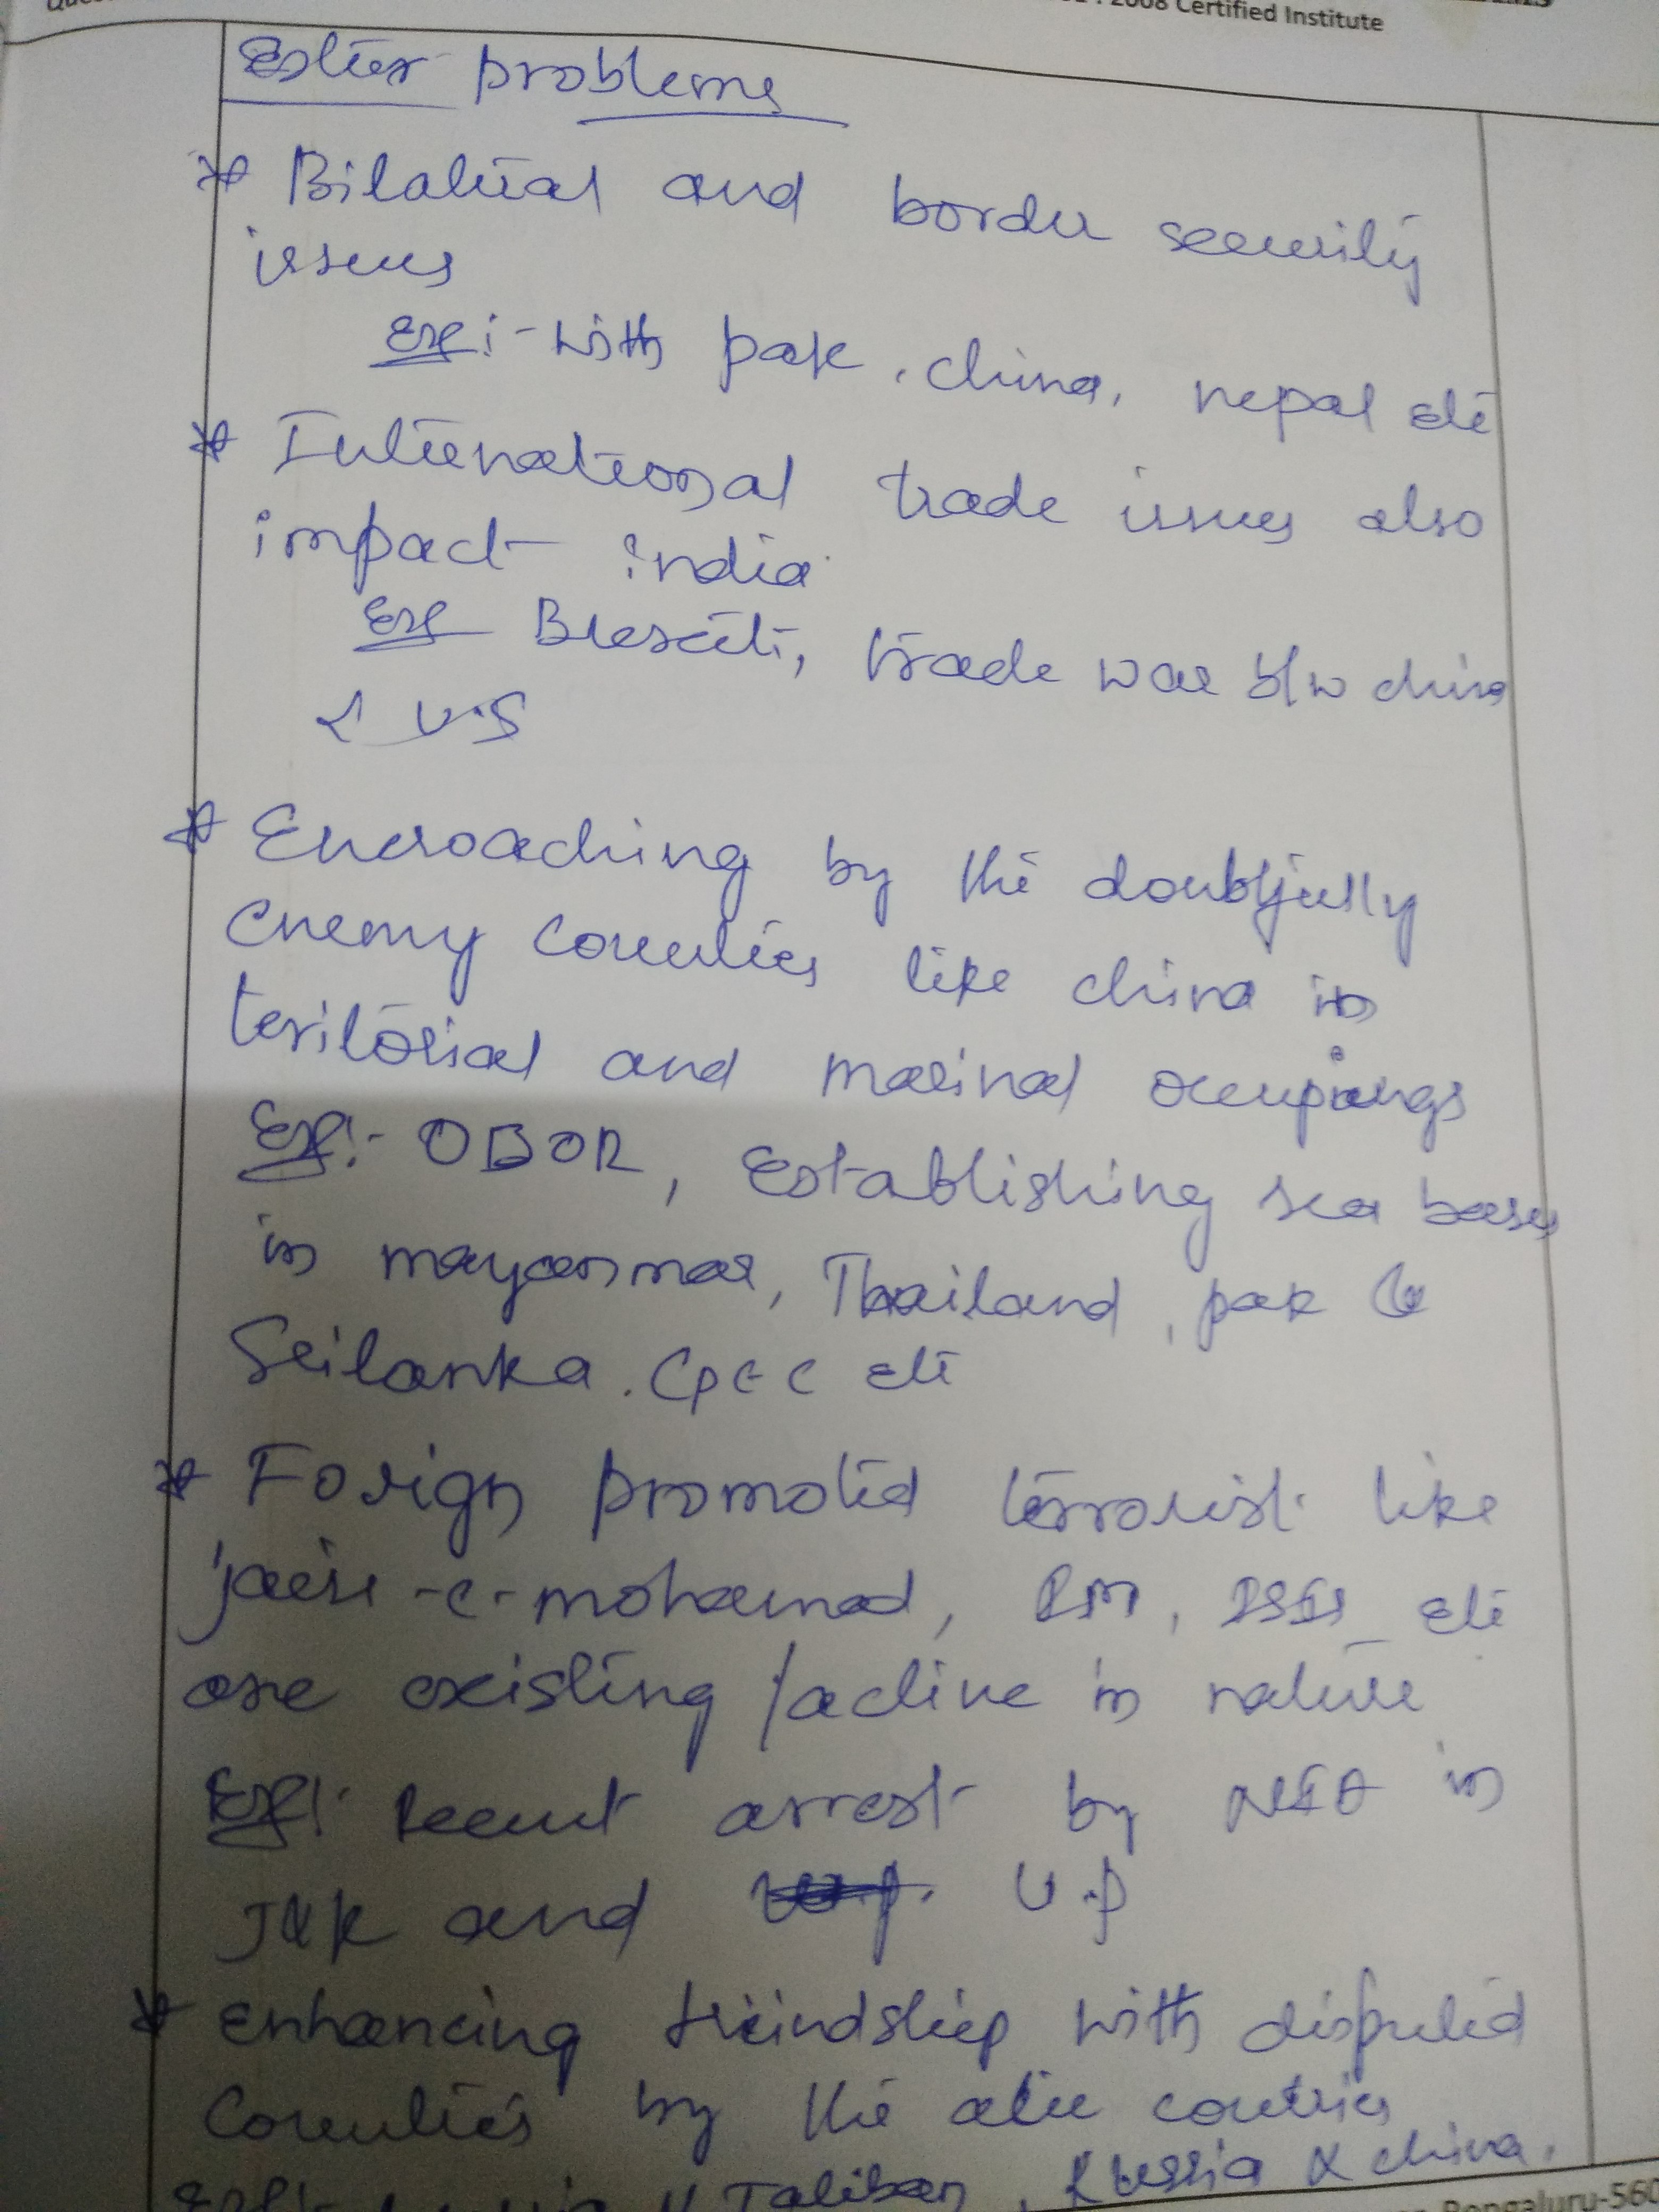 2008 Certified Institute
Exter problems
* Bilateral and border security
issues
Ex:- with pak, china, nepal etc
* International trade issues also
impact india
Ex Brexit, trade war b/w china
& U.S
* Encroaching by the doubtfully
enemy countries like china in
teritorial and marinal occupings
Ex:- OBOR, Establishing sea bases
in mayanmar, Thailand, pak &
Srilanka. CPEC etc
* Forign promoted terrorist like
jaish-e-mohamad, ISIS etc
are existing/active in nature
Ex:- Recent arrest by NIA in
J&K and U.P
* Enhancing friendship with disputed
Countries by the countries
& Taliban, Russia & china.
Bengaluru-560